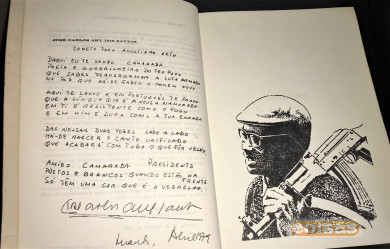 JOSÉ CARLOS ARY DOS SANTOS
SONETO PARA AGOSTINHO NETO
DAQUI EU TE SAÚDO CAMARADA
POETA E GUERRILHEIRO DO TEU POVO
QUE SABES TRANSFORMAR A LUTA ARMADA
NA PAZ QUE HÁ-DE SABER O HOMEM NOVO
AQUI TE LOUVO E EM PORTUGUÊS TE
QUE A LÍNGUA QUE É A NOSSA NAMORADA
EM TI É RESISTENTE COMO O POVO
E EM MIM É DURA COMO A TUA ENXADA
DAS NOSSAS DUAS VOZES LADO A LADO
HÁ-DE NASCER O CANTO UNIFICADO
QUE ACABARÁ COM TUDO O QUE FOR VELHO
AMIGO CAMARADA PRESIDENTE
PRETOS E BRANCOS QUANDO ESTÃO NA FRENTE
SÓ TÊM UMA COR QUE É O VERMELHO
Luanda, Abril